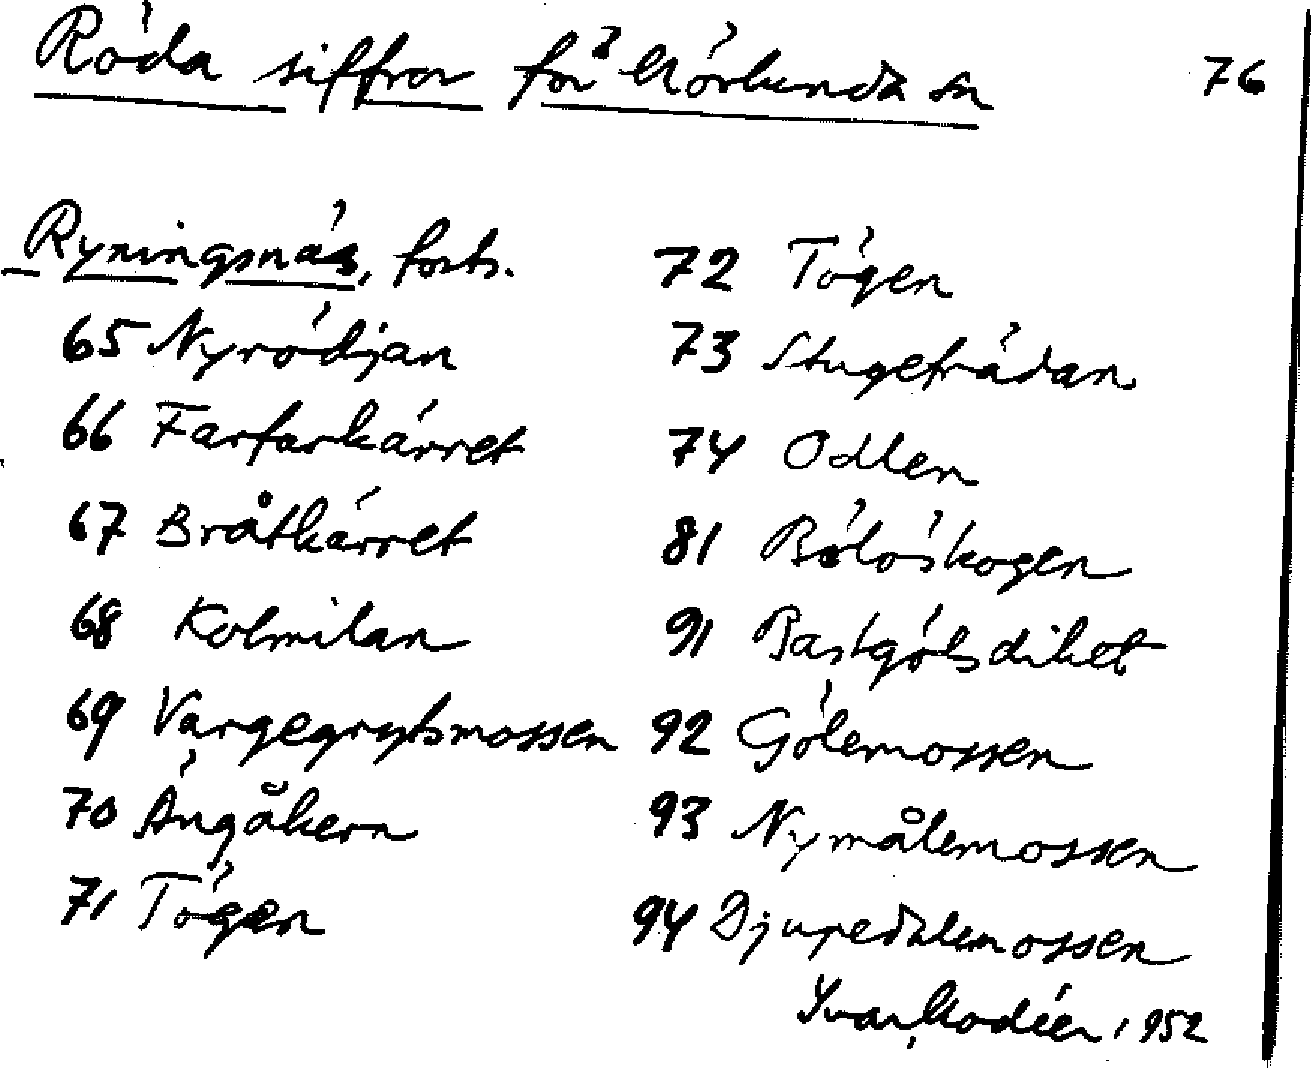 Röda siffror för Mörlunda sn 76
Ryningsnäs, forts.
65 Nyrödjan
66 Farfarkärret
67 Bråtkärret
68 Kolmilan
69 Vargegrytsmossen
70 Ängåkern
71 Tögen
72 Tögen
73 Stugeträdan
74 Odlen
81 Bölöskogen
91 Bastgölsdiket
92 Gölemossen
93 Nymålemossen
94 Djupedalemossen
Ivar Modéer, 1952